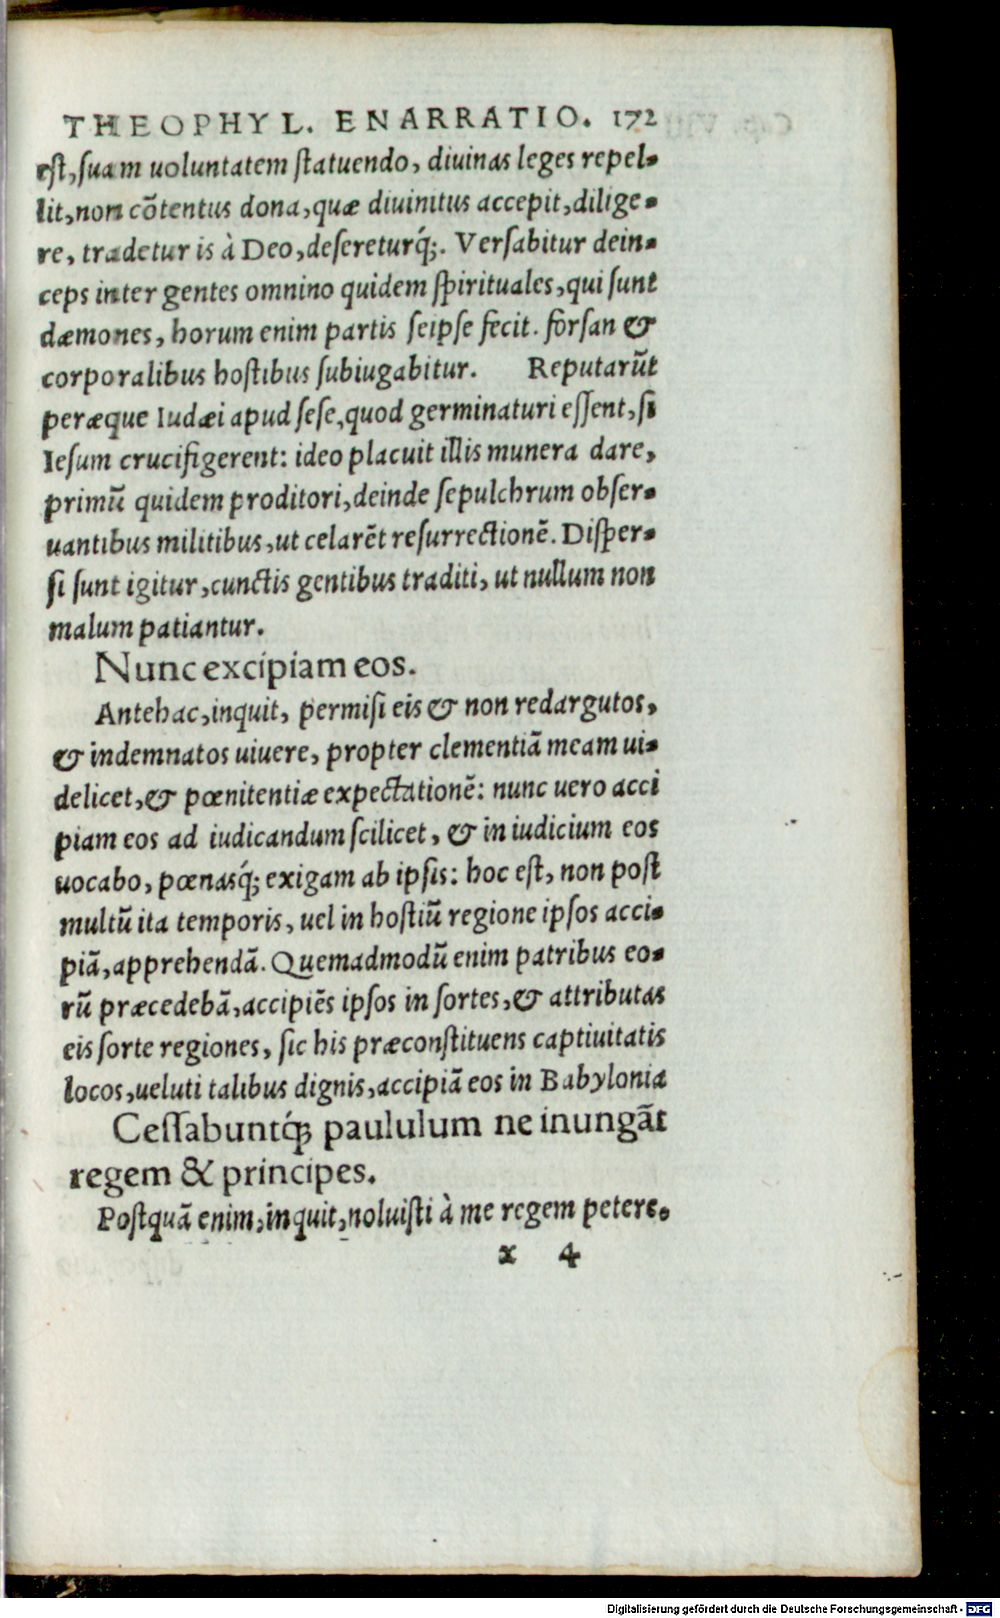 THEOPHYL. ENARRATIO. 172
est, suam uoluntatem statuendo, diuinas leges repel-
lit, non cõtentus dona, quæ diuinitus accepit, dilige-
re, tradetur is à Deo, desereturq́;. Versabitur dein-
ceps inter gentes omnino quidem spirituales, qui sunt
dæmones, horum enim partis seipse fecit. forsan &
corporalibus hostibus subiugabitur. Reputarũt
peræque Iudæi apud sese, quod germinaturi essent, si
Iesum crucifigerent: ideo placuit illis munera dare,
primũ quidem proditori, deinde sepulchrum obser-
uantibus militibus, ut celarẽt resurrectionẽ. Disper-
si sunt igitur, cunctis gentibus traditi, ut nullum non
malum patiantur.
Nunc excipiam eos.
Antehac, inquit, permisi eis & non redargutos,
& indemnatos uiuere, propter clementiã meam ui-
delicet, & pœnitentiæ expectationẽ: nunc uero acci
piam eos ad iudicandum scilicet, & in iudicium eos
uocabo, pœnasq́; exigam ab ipsis: hoc est, non post
multũ ita temporis, uel in hostiũ regione ipsos acci-
piã, apprehendã. Quemadmodũ enim patribus eo-
rũ præcedebã, accipiẽs ipsos in sortes, & attributas
eis sorte regiones, sic his præconstituens captiuitatis
locos, ueluti talibus dignis, accipiã eos in Babylonia
Cessabuntq́; paululum ne inungãt
regem & principes.
Postquã enim, inquit, noluisti à me regem petere,
x 4
Digitalisierung gefördert durch die Deutsche Forschungsgemeinschaft - DFG